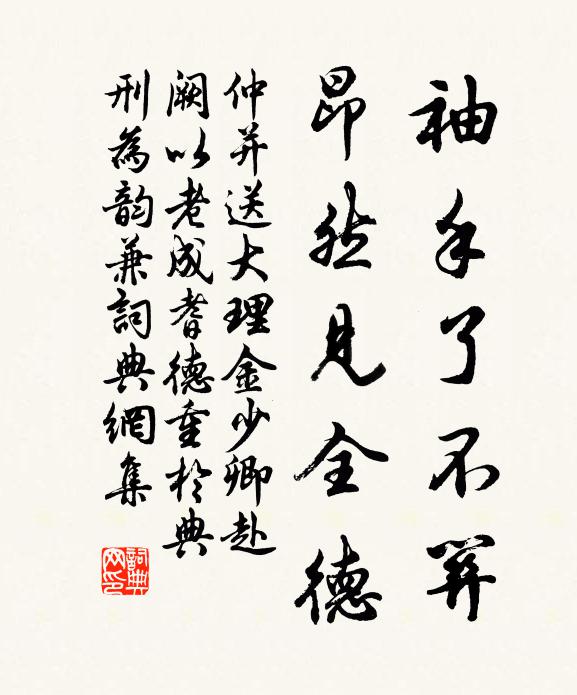 袖手了不
昂然見全德
仲并送大理金少卿赴
闕以老成耆德重於典
刑為韵兼詞典網集
詞典
网印